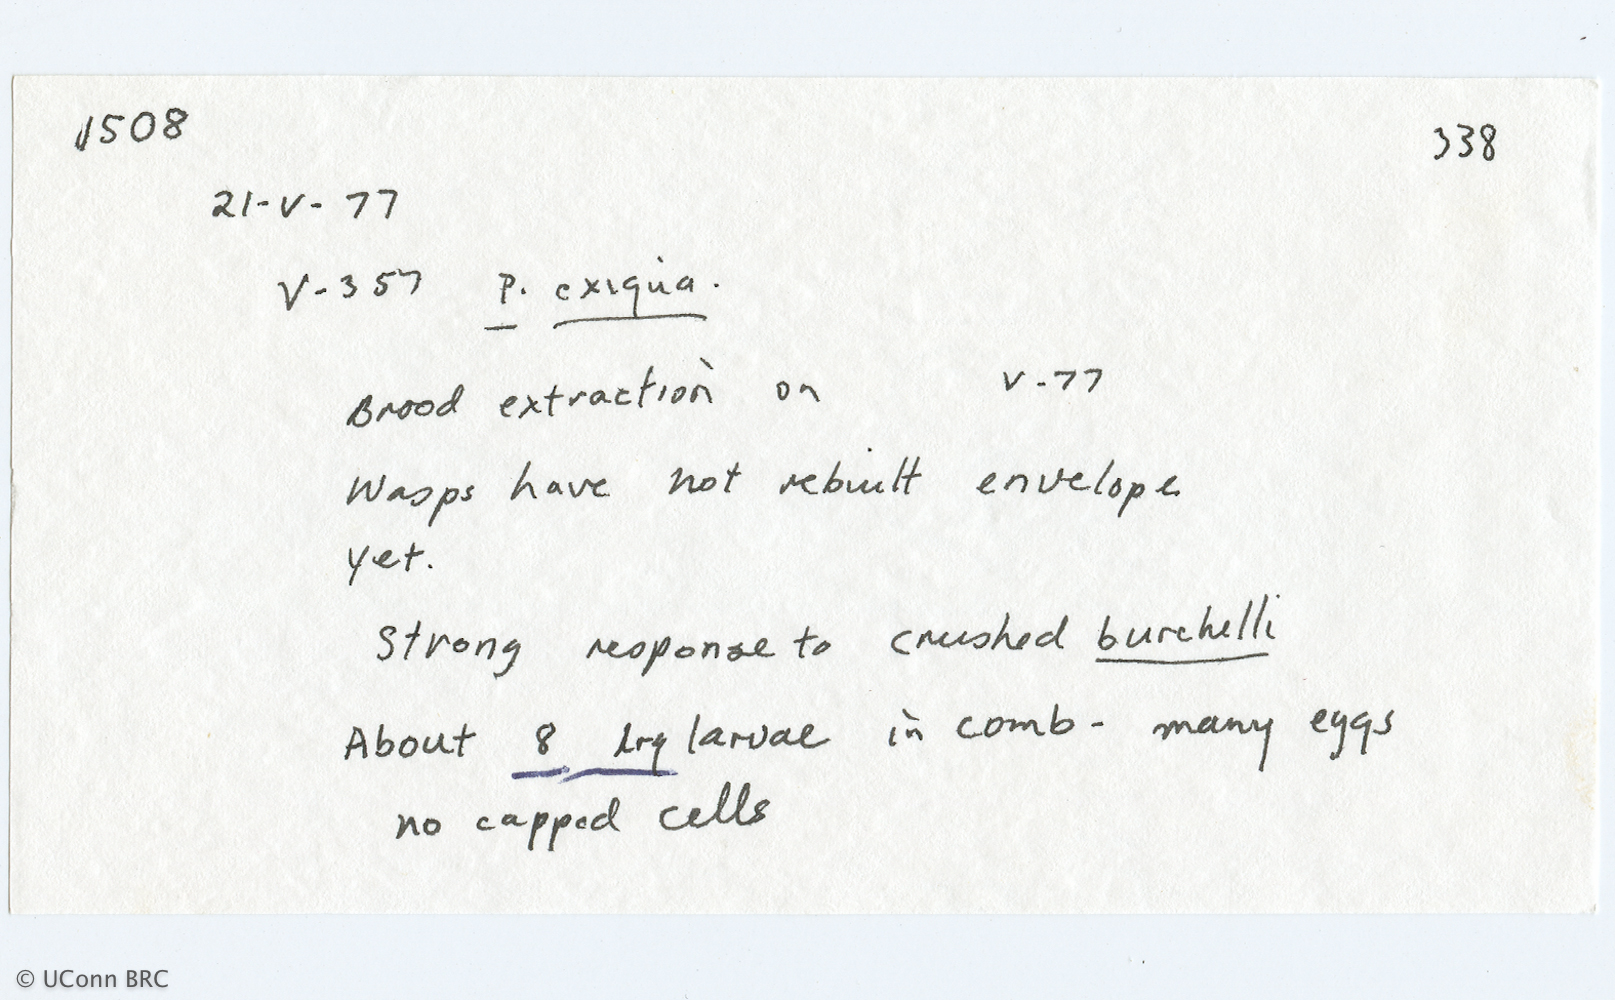 1508
338
21-V-77
V-357 P. exigua.
Brood extraction on V-77
Wasps have not rebuilt envelope
yet.
Strong response to crushed burchelli
About 8 lrg larvae in comb - many eggs
no capped cells
© UConn BRC